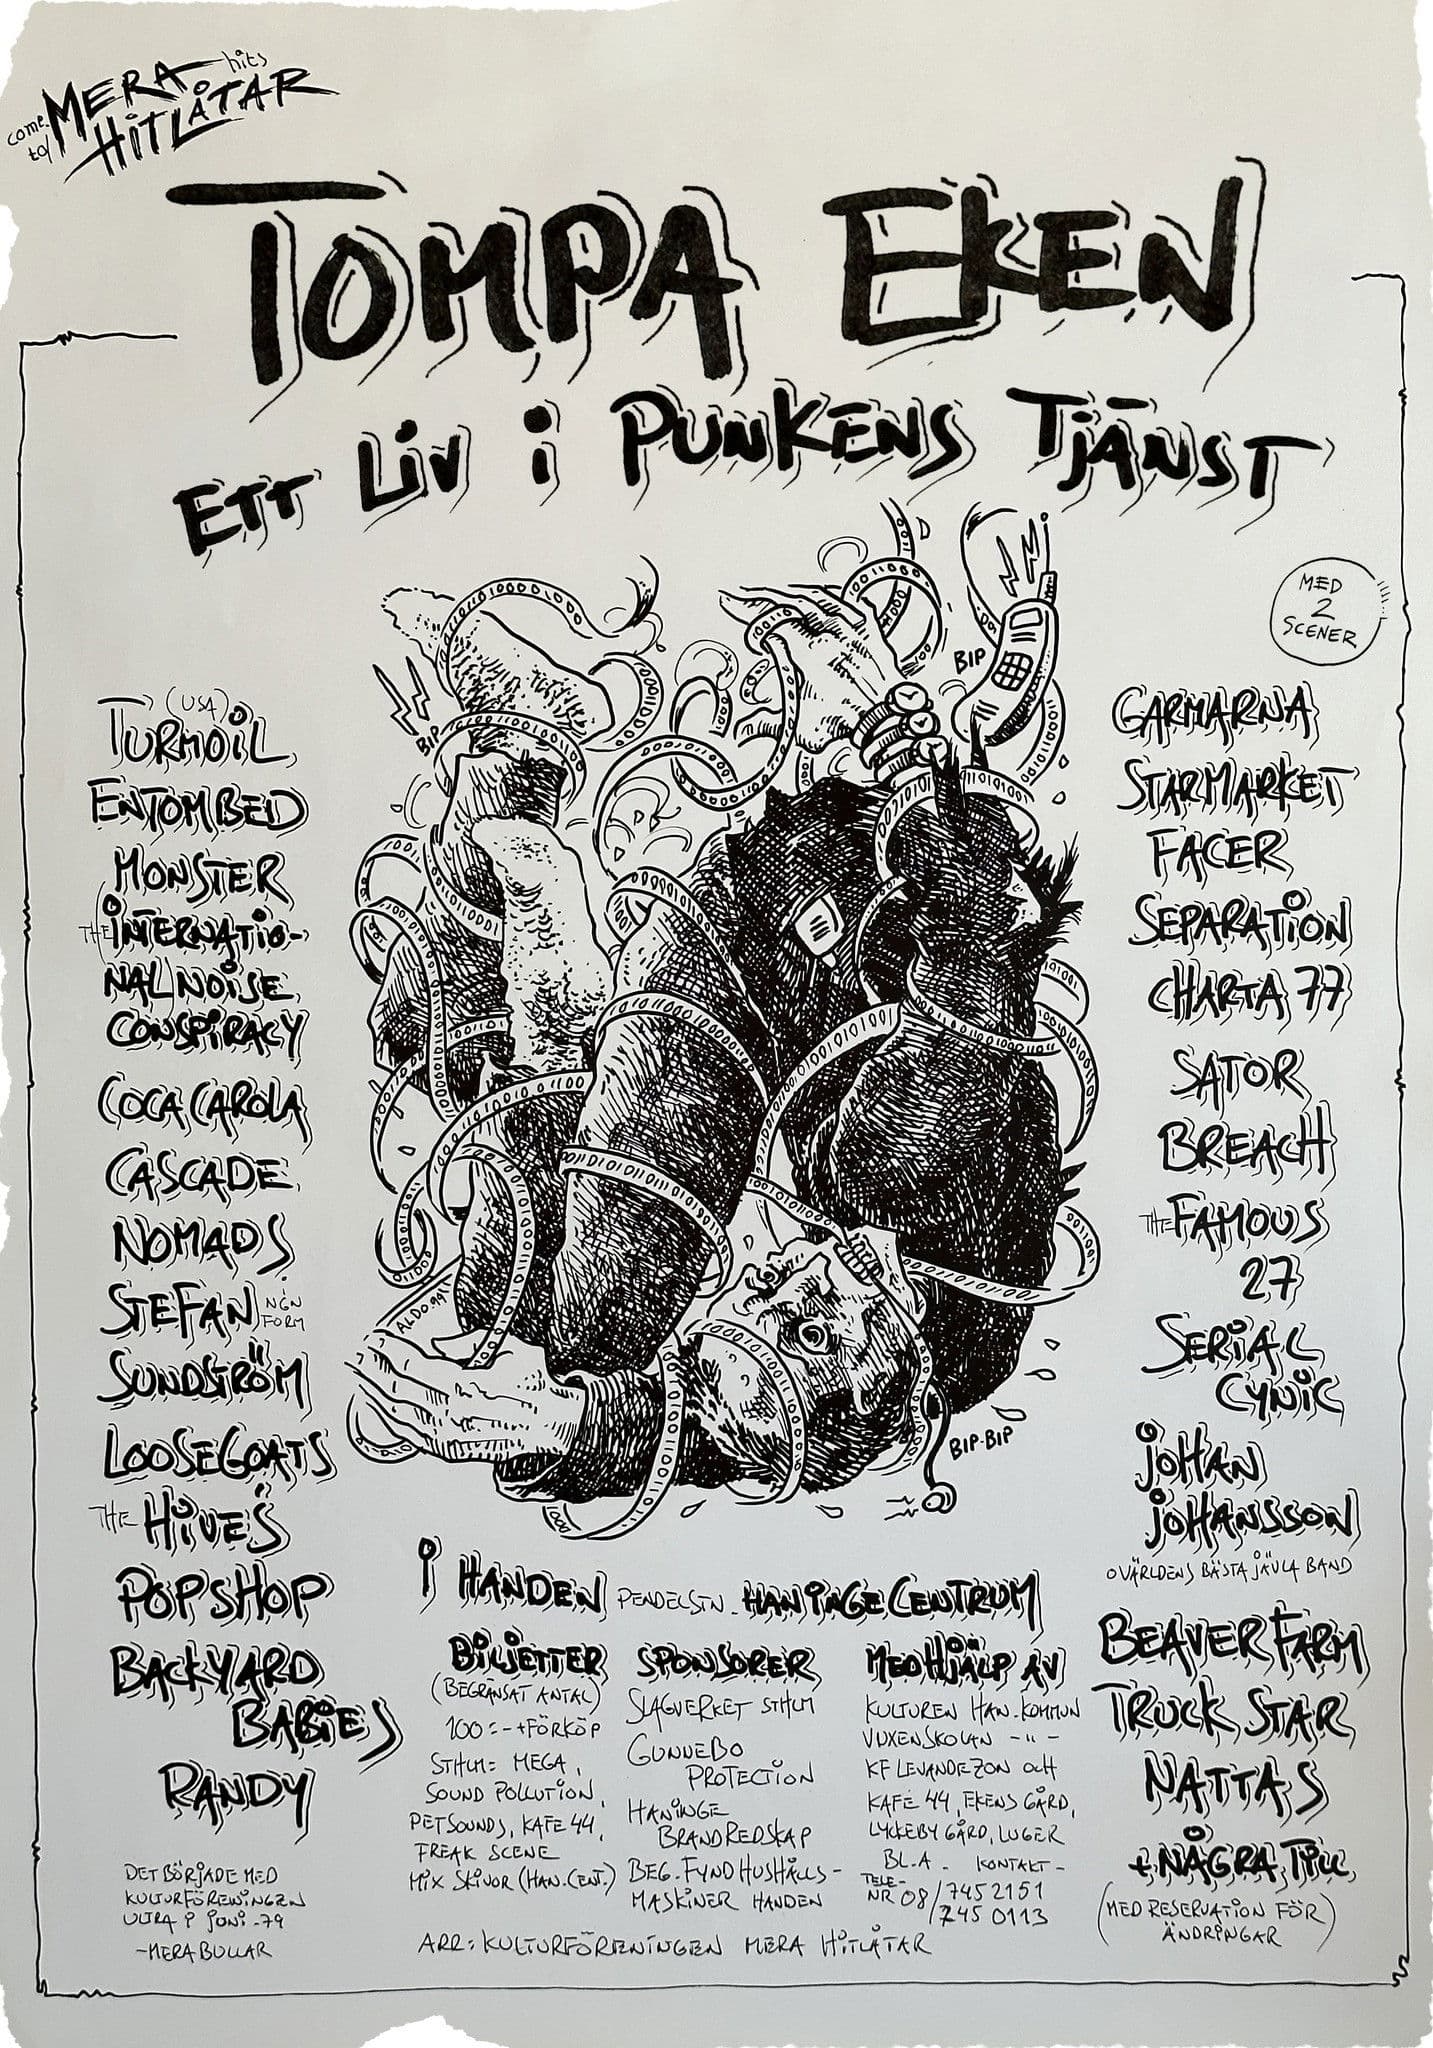 come to/ MERA hits
HITLÅTAR
TOMPA EKEN
ETT LIV I PUNKENS TJÄNST
MED
2
SCENER
BIP
BIP
TURMOIL (USA)
ENTOMBED
MONSTER
THE INTERNATIO-
NAL NOISE
CONSPIRACY
COCA CAROLA
CASCADE
NOMADS
STEFAN NGN FORM
SUNDSTRÖM
LOOSEGOATS
THE HIVES
POPSHOP
BACKYARD
BABIES
RANDY
DET BÖRJADE MED
KULTURFÖRENINGEN
ULTRA I JUNI -79
-MERA BULLAR
ALDO.99
BIP-BIP
I HANDEN PENDELSTN. HANINGE CENTRUM
BILJETTER
(BEGRÄNSAT ANTAL)
100:- +FÖRKÖP
STHLM: MEGA,
SOUND POLLUTION,
PETSOUNDS, KAFE 44,
FREAK SCENE
MIX SKIVOR (HAN.CENT.)
SPONSORER
SLAGVERKET STHLM
GUNNEBO
PROTECTION
HANINGE
BRANDREDSKAP
BEG. FYND HUSHÅLLS-
MASKINER HANDEN
MED HJÄLP AV
KULTUREN HAN. KOMMUN
VUXENSKOLAN -"-
KF LEVANDE ZON OCH
KAFE 44, EKENS GÅRD,
LYCKEBY GÅRD, LUGER
BL.A. KONTAKT-
TELE-
NR 08/7452151
/745 0113
ARR: KULTURFÖRENINGEN MERA HITLÅTAR
GARMARNA
STARMARKET
FACER
SEPARATION
CHARTA 77
SATOR
BREACH
THE FAMOUS
27
SERIAL
CYNIC
JOHAN
JOHANSSON
O VÄRLDENS BÄSTA JÄVLA BAND
BEAVER FARM
TRUCK STAR
NATTAS
+ NÅGRA TILL
(MED RESERVATION FÖR
ÄNDRINGAR)